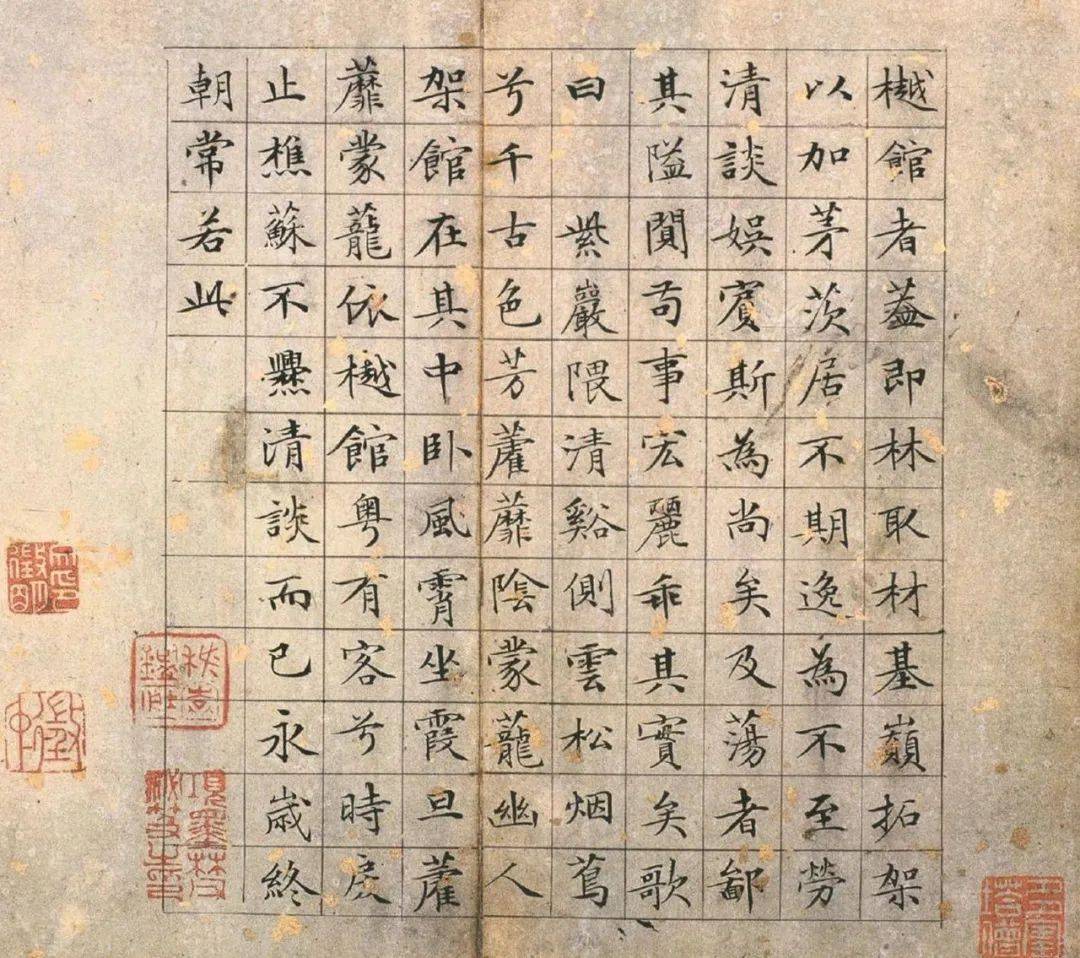 樾館者葢即林取材基巔拓架
以加茅茨居不期逸為不至勞
清談娛賓斯為尚矣及蕩者鄙
其隘閴苟事宏麗乖其實矣歌
曰 紫巖隈清谿側雲松烟蔦
兮千古色芳藋蘼陰蒙蘢幽人
架館在其中卧風霄坐霞旦藋
蘼蒙蘢依樾館粵有客兮時戾
止樵蘇不爨清談而已永歲終
朝常若此
項墨林父
秘笈之印